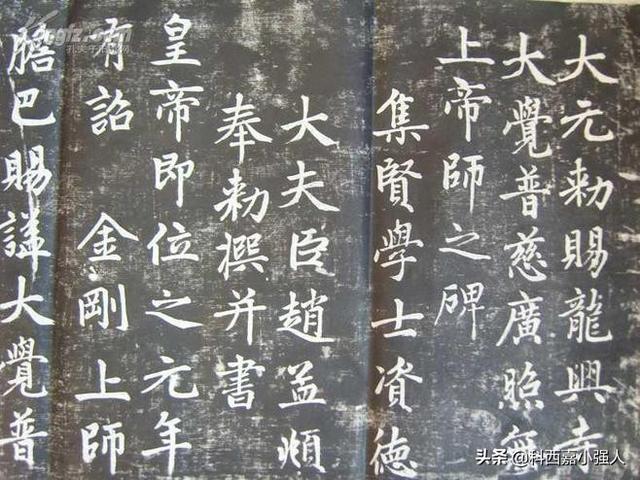 大元勅賜龍興寺
大覺普慈廣照無
上帝師之碑
集賢學士資德
大夫臣趙孟頫
奉勅撰并書
皇帝即位之元年
有詔 金剛上師
膽巴賜謚大覺普
头条 @科西嘉小强人